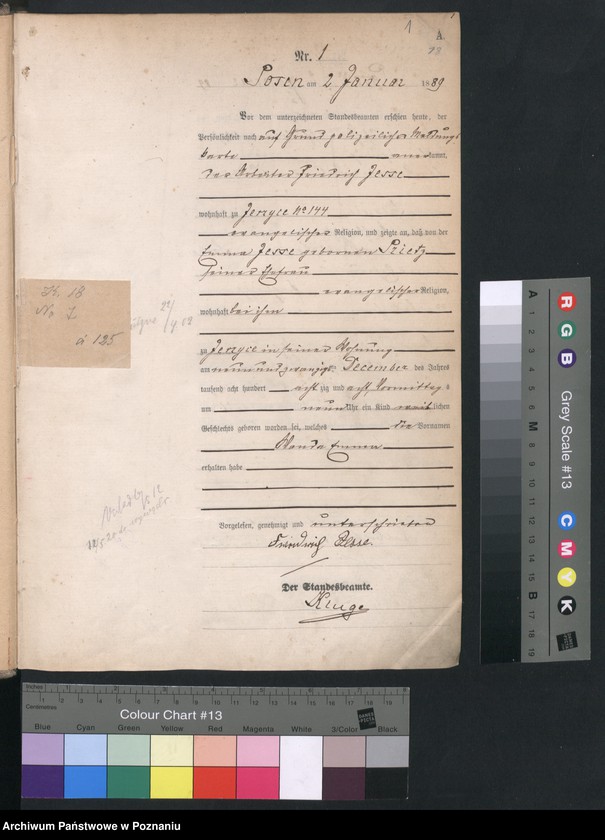 1
A.
Nr. 1
Posen am 2 Januar 1889
Vor dem unterzeichneten Standesbeamten erschien heute, der
Persönlichkeit nach auf Grund polizeilicher Meldungs
karte anerkannt,
der Arbeiter Friedrich Jesse
wohnhaft zu Jerzyce No 144
evangelischer Religion, und zeigte an, daß von der
Emma Jesse geborenen Prietz
seiner Ehefrau
evangelischer Religion,
wohnhaft bei ihm
zu Jerzyce in seiner Wohnung
am neunundzwanzigsten Decembre des Jahres
tausend acht hundert achtzig und acht, Vormittags
um neun Uhr ein Kind weiblichen
Geschlechts geboren worden sei, welches die Vornamen
Wanda Emma
erhalten habe
Vorgelesen, genehmigt und unterschrieben
Friedrich Jesse.
Der Standesbeamte.
Kruge
No 1
a 125
Inches
Centimetres
Colour Chart #13
Blue Cyan Green Yellow Red Magenta White 3/Color Black
R G B
Grey Scale #13
C M Y K
A 1 2 3 4 5 6 M 8 9 10 11 12 13 14 15 B 17 18 19
Archiwum Państwowe w Poznaniu